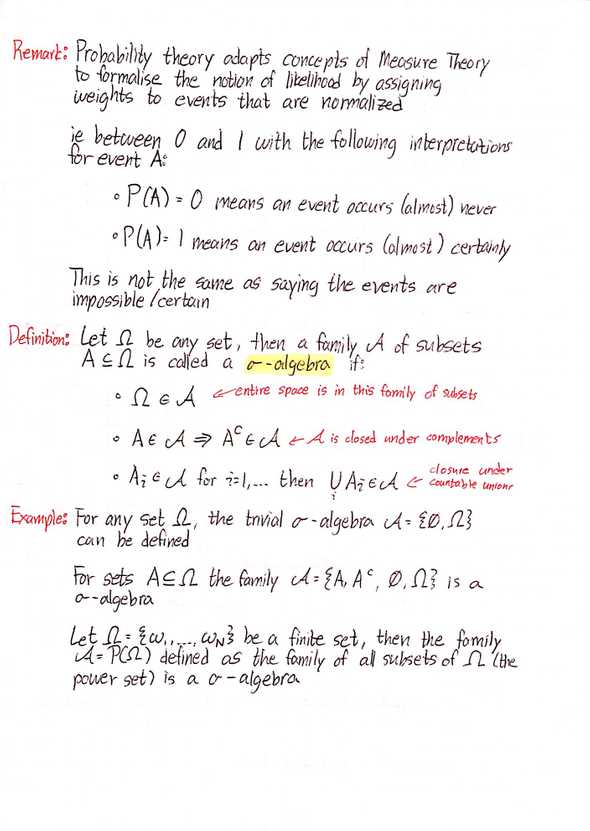 Remark: Probability theory adapts concepts of Measure Theory
to formalise the notion of likelihood by assigning
weights to events that are normalized
ie between 0 and 1 with the following interpretations
for event A:
• P(A) = 0 means an event occurs (almost) never
• P(A) = 1 means an event occurs (almost) certainly
This is not the same as saying the events are
impossible/certain
Definition: Let Ω be any set, then a family 𝒜 of subsets
A ⊆ Ω is called a σ-algebra if:
• Ω ∈ 𝒜 ← entire space is in this family of subsets
• A ∈ 𝒜 ⇒ Aᶜ ∈ 𝒜 ← 𝒜 is closed under complements
• Aᵢ ∈ 𝒜 for i=1,... then ⋃ᵢ Aᵢ ∈ 𝒜 ← closure under
countable unions
Example: For any set Ω, the trivial σ-algebra 𝒜 = {∅, Ω}
can be defined
For sets A ⊆ Ω the family 𝒜 = {A, Aᶜ, ∅, Ω} is a
σ-algebra
Let Ω = {ω₁, ..., ω_N} be a finite set, then the family
𝒜 = P(Ω) defined as the family of all subsets of Ω (the
power set) is a σ-algebra